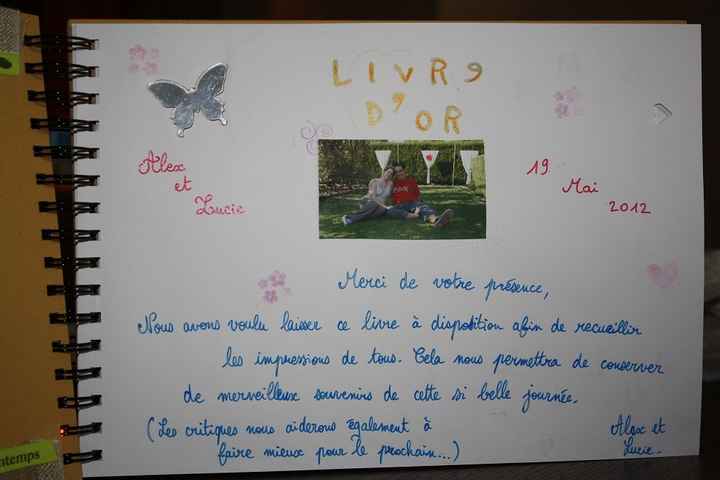 LIVRe
D'OR
Alex
et
Lucie
19
Mai
2012
Merci de votre présence,
Nous avons voulu laisser ce livre à disposition afin de recueillir
les impressions de tous. Cela nous permettra de conserver
de merveilleux souvenirs de cette si belle journée.
(Les critiques nous aiderons également à
faire mieux pour le prochain...)
Alex et
Lucie.
ntemps